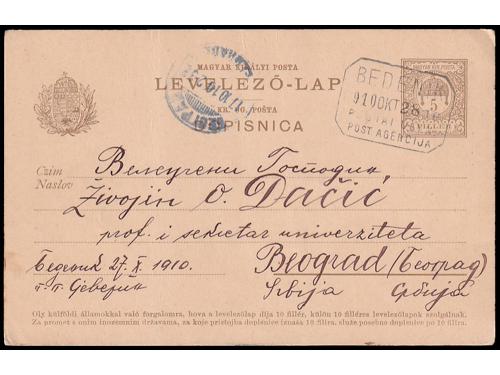 MAGYAR KIRÁLYI POSTA
LEVELEZŐ-LAP
KR. UG. POŠTA
DOPISNICA
BEDENIK
910 OKT 28
POST AGENCIJA
5
FILLÉR
Czim
Naslov
Велеучени Господин,
Živojin O. Dačić
prof. i sekretar univerziteta
Беденик 27. X. 1910.
Beograd (Београд)
п. п. Геверик
Srbija Србија
Oly külföldi államokkal való forgalomra, hova a levelezőlap díja 10 fillér, külön 10 filléres levelezőlapok szolgálnak.
Za promet s onim inozemnim državama, za koje pristojba dopisnice iznaša 10 filira, služe posebno dopisnice po 10 filira.